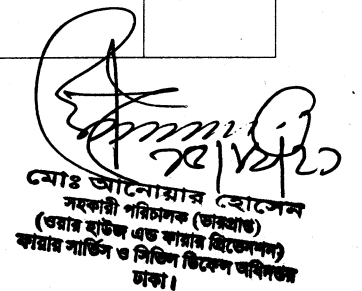 মোঃ আনোয়ার হোসেন
সহকারী পরিচালক (ভারপ্রাপ্ত)
(ওয়ার হাউজ এন্ড ফায়ার প্রিভেনশন)
ফায়ার সার্ভিস ও সিভিল ডিফেন্স অধিদপ্তর
ঢাকা।